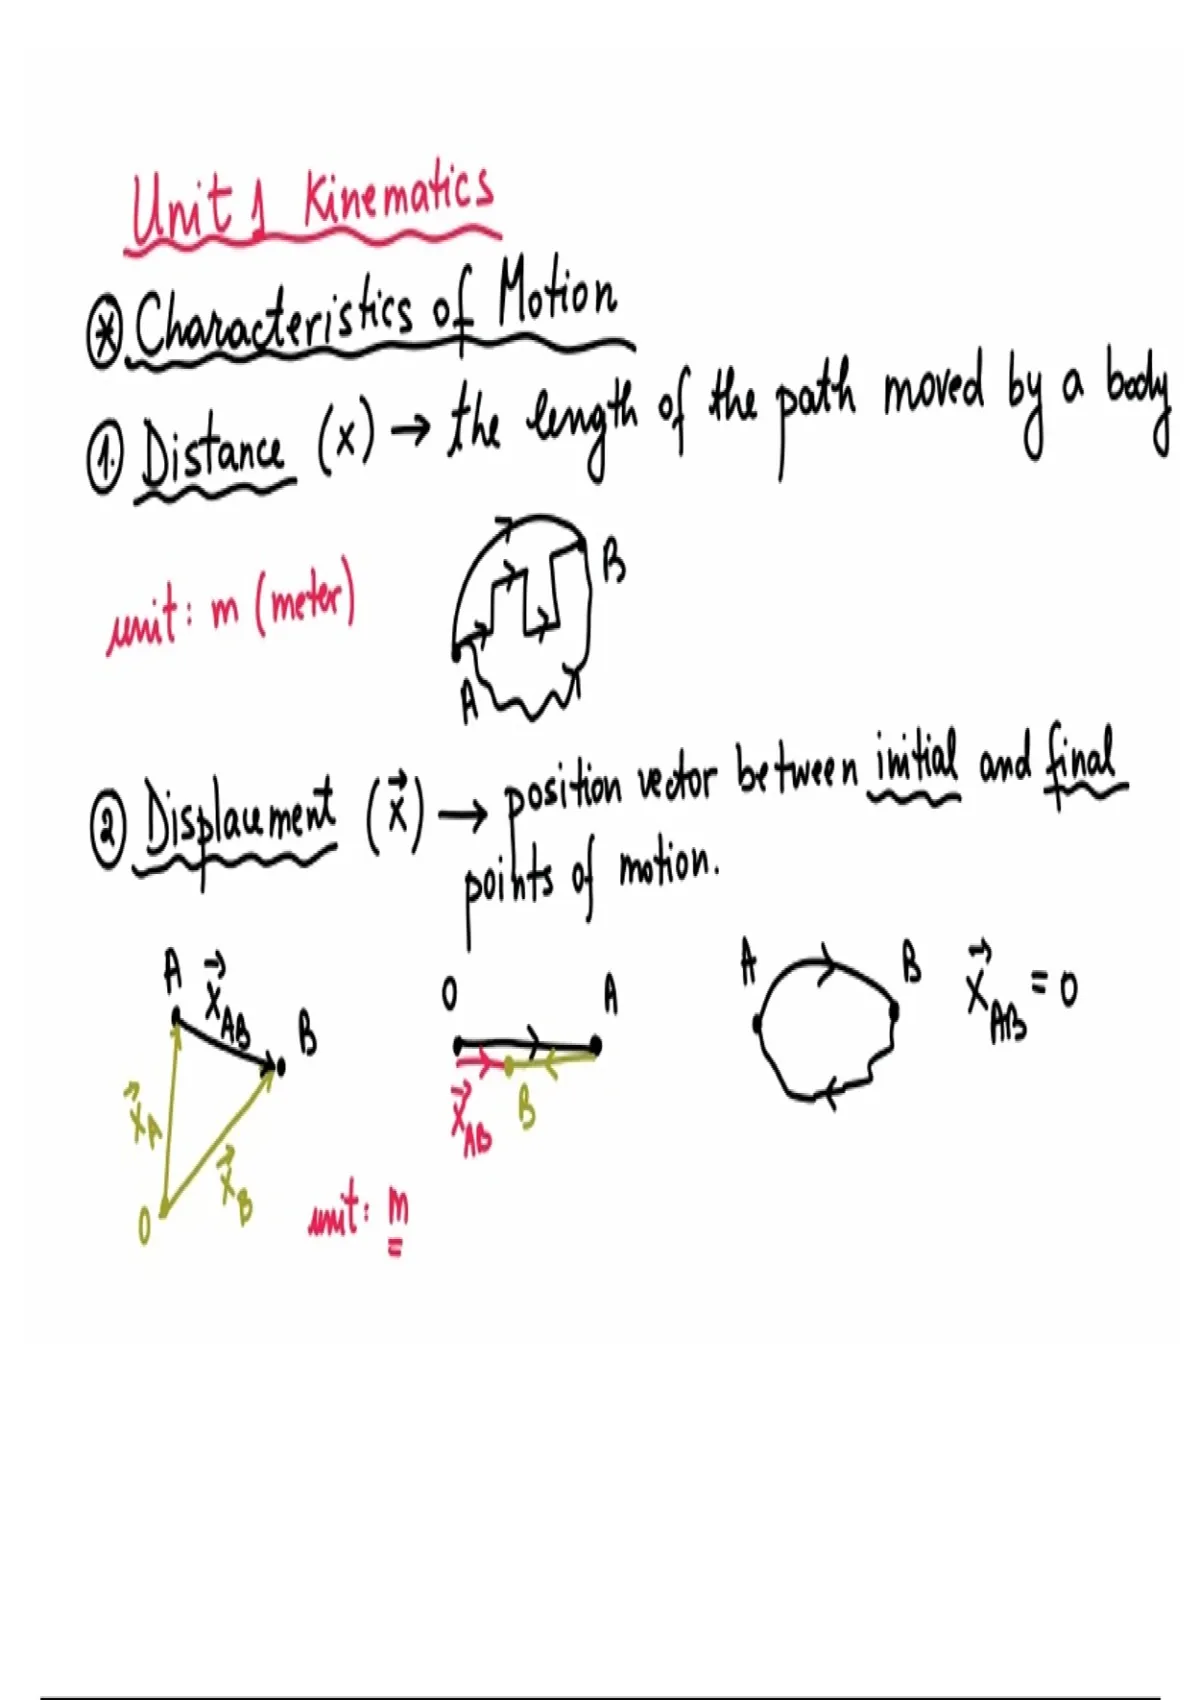 Unit 1 Kinematics
⊛ Characteristics of Motion
① Distance (x) → the length of the path moved by a body
unit: m (meter)
B
A
② Displacement (x⃗) → position vector between initial and final
points of motion.
A x⃗AB B
x⃗A x⃗B
O
unit: m
O A
x⃗AB B
A B x⃗AB = 0